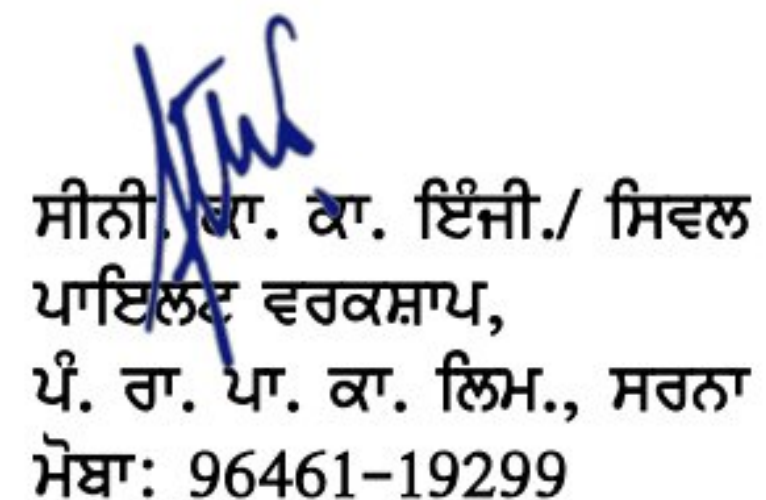 ਸੀਨੀ. ਕਾ. ਕਾ. ਇੰਜੀ./ ਸਿਵਲ
ਪਾਇਲਟ ਵਰਕਸ਼ਾਪ,
ਪੰ. ਰਾ. ਪਾ. ਕਾ. ਲਿਮ., ਸਰਨਾ
ਮੋਬਾ: 96461-19299